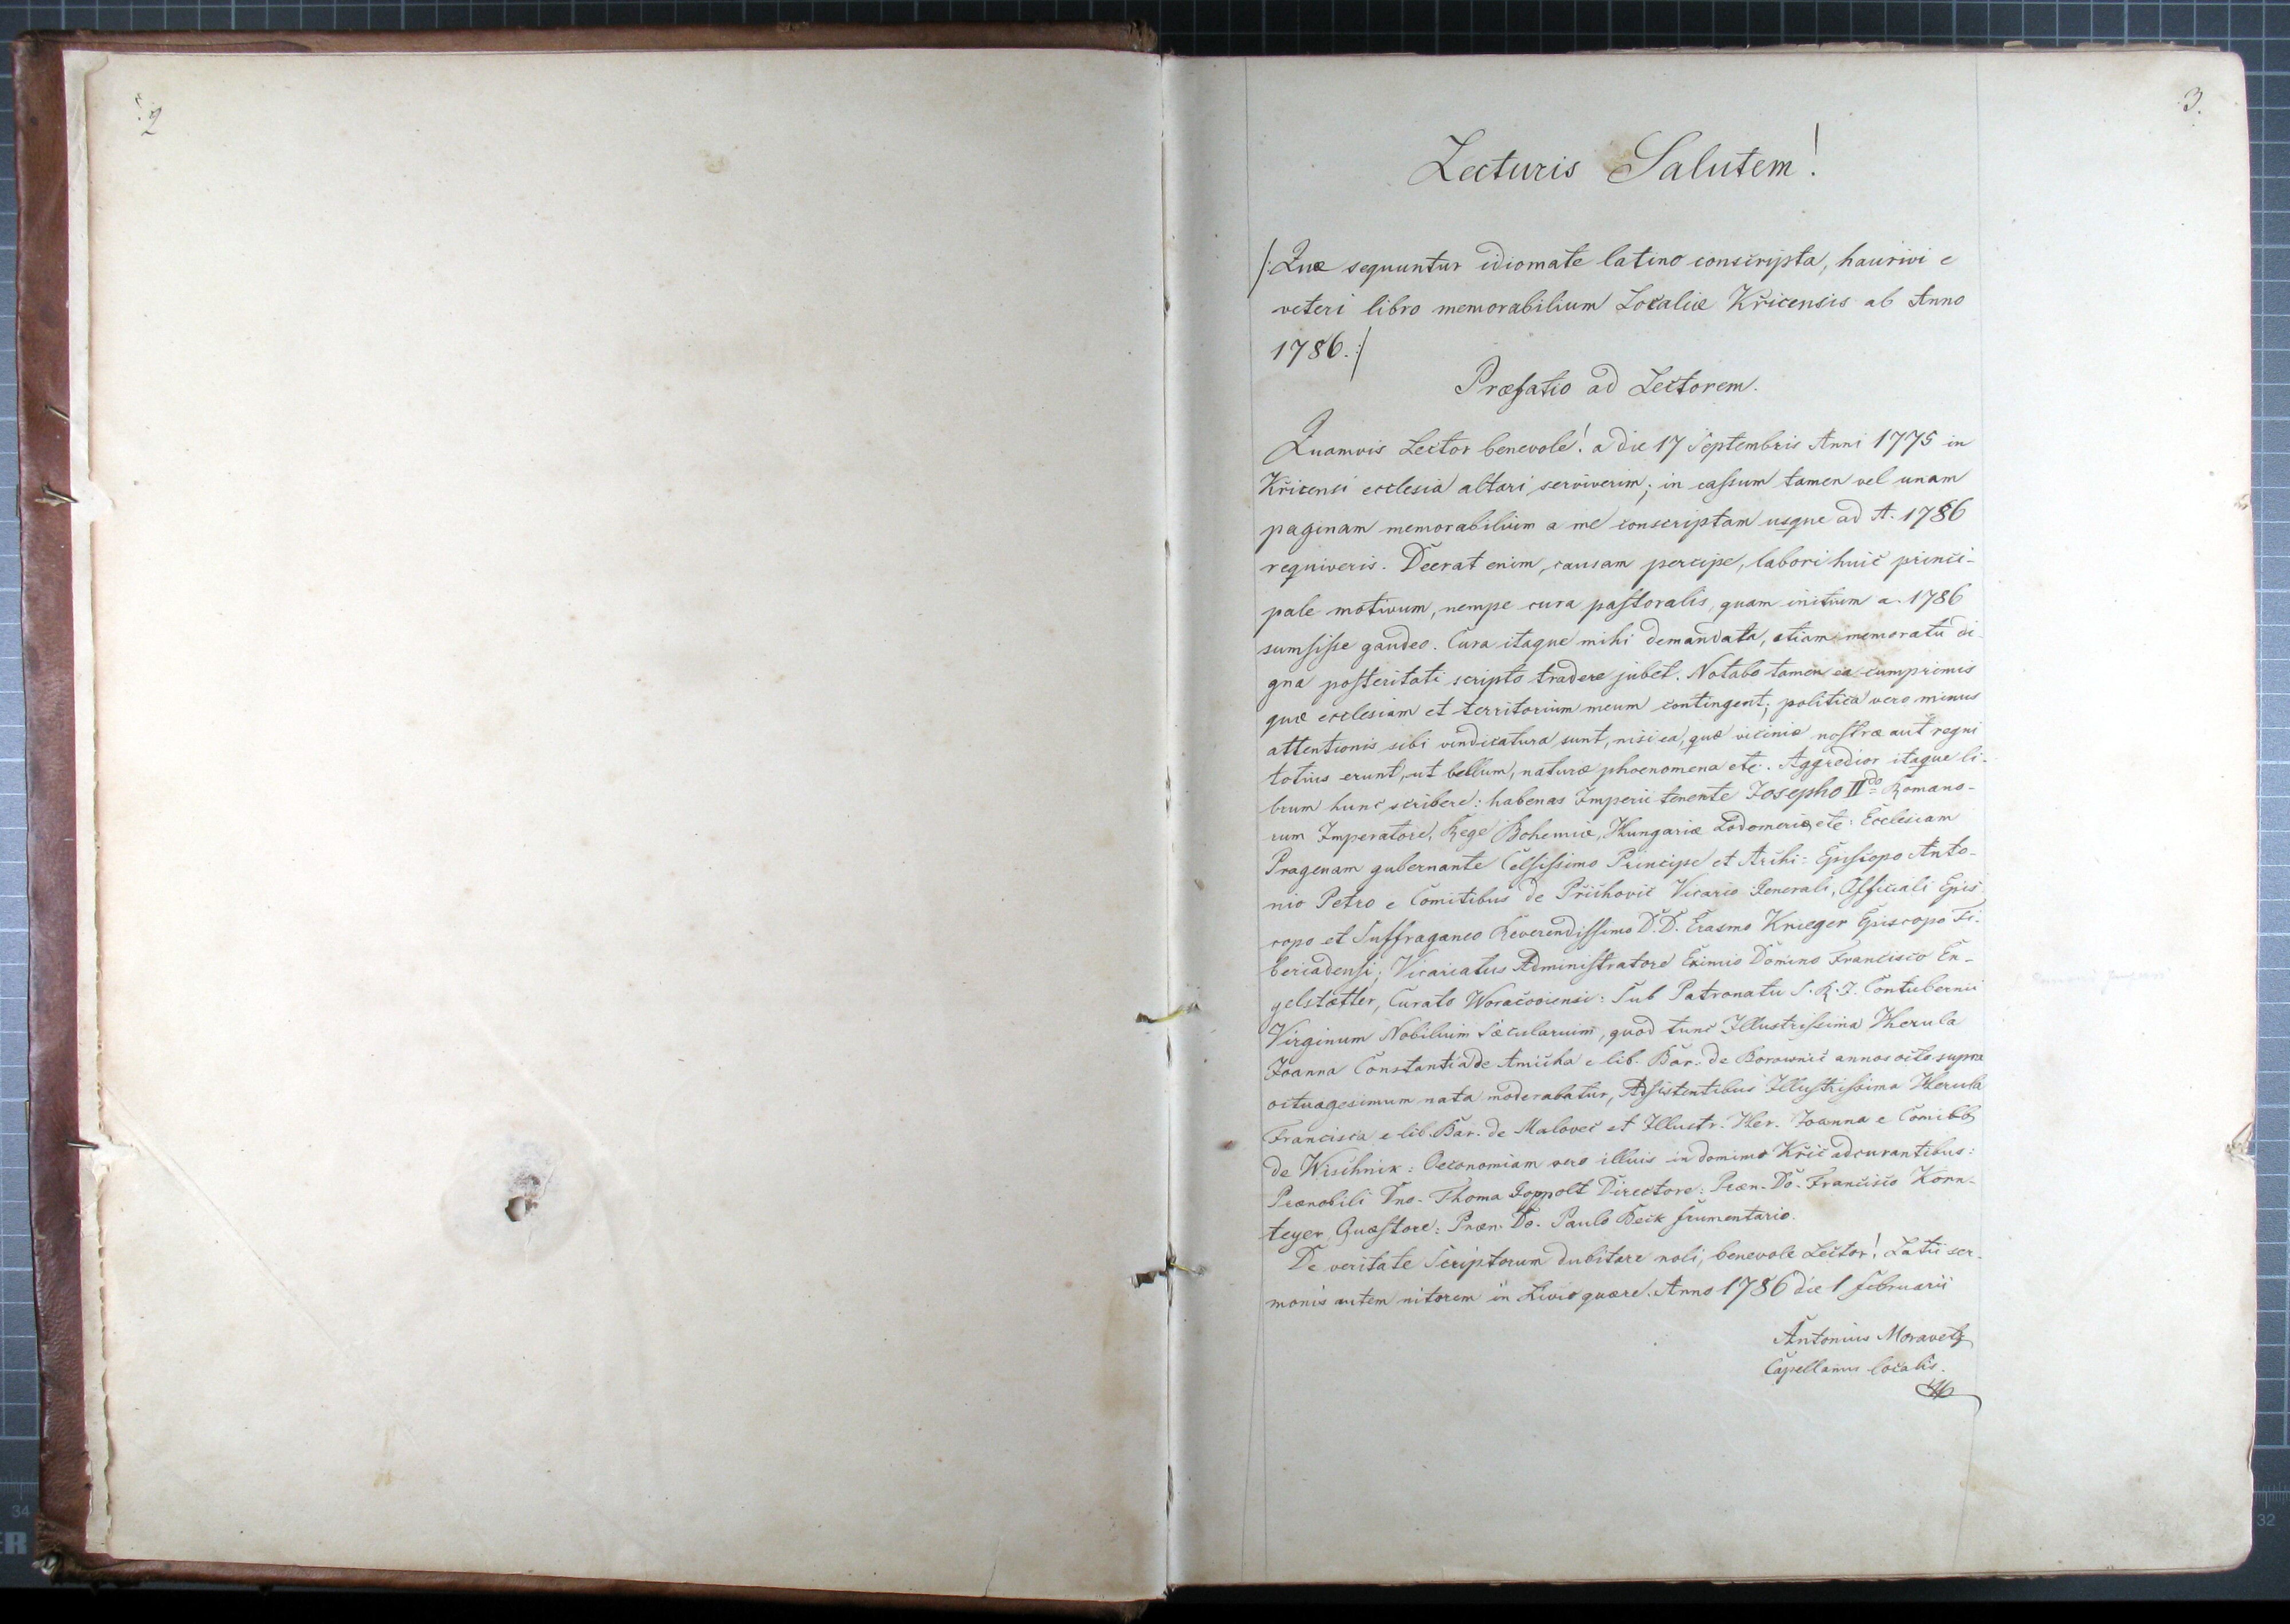 2
3.
Lecturis Salutem!
/: Quæ sequuntur idiomate latino conscripta, haurivi e
veteri libro memorabilium Localiæ Křicensis ab Anno
1786. :/
Præfatio ad Lectorem.
Quamvis Lector benevole! a die 17 Septembris Anni 1775 in
Křicensi ecclesia altari serviverim; in cassum tamen vel unam
paginam memorabilium a me conscriptam usque ad A. 1786
requiveris. Deerat enim, causam percipe, labori huic princi-
pale motivum, nempe cura pastoralis, quam initium a. 1786
sumsisse gaudeo. Cura itaque mihi demandata, etiam memoratu di-
gna posteritati scripto tradere jubet. Notabo tamen ea cumprimis
quæ ecclesiam et territorium meum contingent; politica vero minus
attentionis sibi vindicatura sunt, nisi ea, quæ viciniæ nostræ aut regni
totius erunt, ut bellum, naturæ phoenomena etc. Aggredior itaque li-
brum hunc scribere: habenas Imperii tenente Josepho II do Romano-
rum Imperatore, Rege Bohemiæ, Hungariæ Lodomeriæ, etc: Ecclesiam
Pragenam gubernante Celsissimo Principe et Archi-Episcopo Anto-
nio Petro e Comitibus de Přichovic Vicario Generali, Officiali Epis-
copo et Suffraganeo Reverendissimo D.D. Erasmo Krieger Episcopo Ti-
beriadensi; Vicariatus Administratore Eximio Domino Francisco En-
gelstætter, Curato Woračoviensi: Sub Patronatu S. R. I. Contubernii
Virginum Nobilium Sæcularium, quod tunc Illustrissima Herula
Joanna Constantia de Amicha e lib. Bar. de Borownic annos octo supra
octuagesimum nata moderabatur, Adsistentibus Illustrissima Herula
Francisca e lib. Bar. de Malovec et Illustr. Her. Joanna e Comibb
de Wischnik: Oeconomiam vero illuis in dominio Křic adcurantibus:
Prænobili Dno. Thoma Goppolt Directore: Præn. Do. Francisco Korn-
teyer Quæstore: Præn. Do. Paulo Beck frumentario.
De veritate Scriptorum dubitare noli, benevole Lector! Latii ser-
monis autem nitorem in Livio quære. Anno 1786 die 1 februarii
Antonius Moravetz
Capellanus localis.